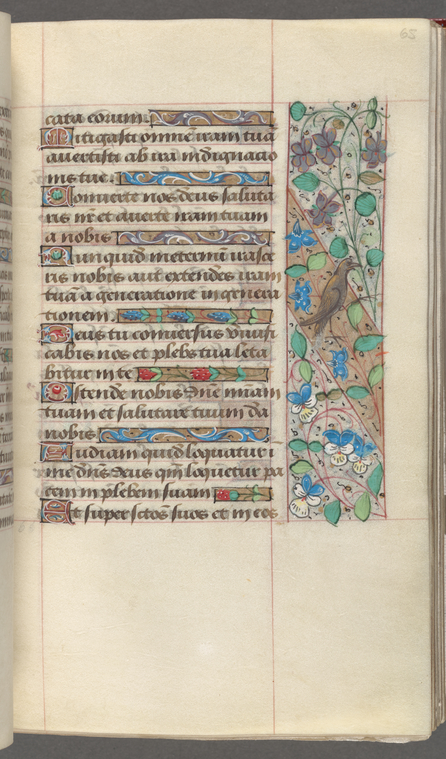 65
cata eorum.
Mitigasti omnē iram tuā
avertisti ab ira indignatio
nis tue.
Converte nos deus saluta
ris nr̄ et averte iram tuam
a nobis
Nunquid ineternū irasce
ris nobis aut extendes iram
tuā a generatione in genera
tionem.
Deus tu conversus vivifi
cabis nos et plebs tua leta
bitur in te
Ostende nobis dn̄e m̄iam
tuam et salutare tuum da
nobis
Audiam quid loquatur ī
me dn̄s deus qm̄ loquetur pa
cem in plebem suam
Et super sctōs suos et in eos